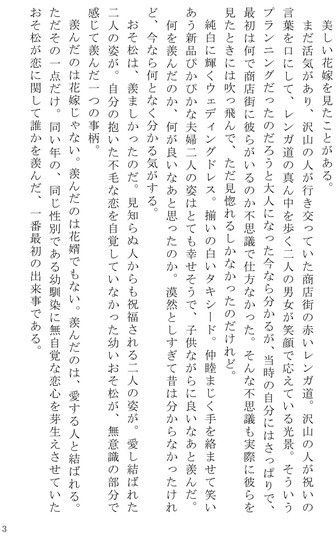 美しい花嫁を見たことがある。
まだ活気があり、沢山の人が行き交っていた商店街の赤いレンガ道。沢山の人が祝いの
言葉を口にして、レンガ道の真ん中を歩く二人の男女が笑顔で応えている光景。そういう
プランニングだったのだろうと大人になった今なら分かるが、当時の自分にはさっぱりで、
最初は何で商店街に彼らがいるのか不思議で仕方なかった。そんな不思議も実際に彼らを
見たときには吹っ飛んで、ただ見惚れるしかなかったのだけれど。
純白に輝くウェディングドレス。揃いの白いタキシード。仲睦まじく手を絡ませて笑い
あう新品ぴかぴかな夫婦二人の姿はとても幸せそうで、子供ながらに良いなあと羨んだ。
何を羨んだのか、何が良いなあと思ったのか。漠然としすぎて昔は分からなかったけれ
ど、今なら何となく分かる気がする。
おそ松は、羨ましかったのだ。見知らぬ人からも祝福される二人の姿が。愛し結ばれた
二人の姿が。自分の抱いた不毛な恋を自覚していなかった幼いおそ松が、無意識の部分で
感じて羨んだ一つの事柄。
羨んだのは花嫁じゃない。羨んだのは花婿でもない。羨んだのは、愛する人と結ばれる。
ただその一点だけ。同い年の、同じ性別である幼馴染に無自覚な恋心を芽生えさせていた
おそ松が恋に関して誰かを羨んだ、一番最初の出来事である。
3